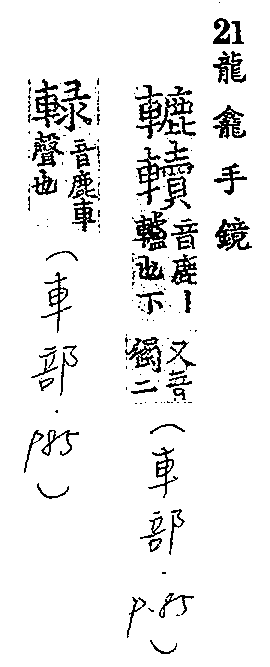 21龍龕手鏡
轆䡱音鹿丨轤也下又音獨二(車部.p.85)
𨌠音鹿車聲也(車部.p85)